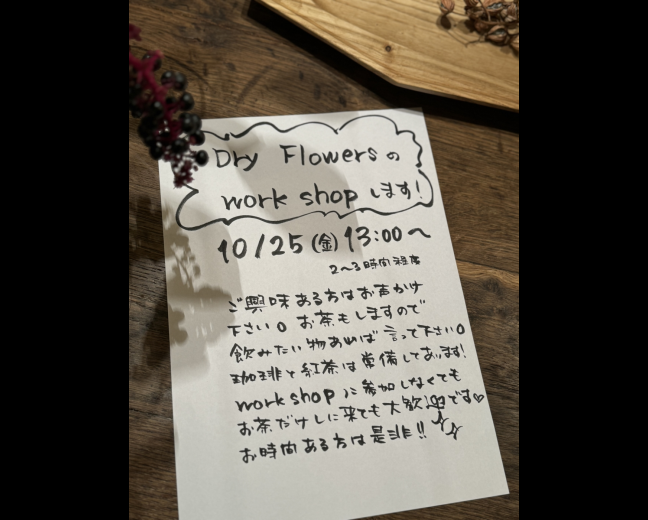 Dry Flowersの
work shopします!
10/25(金) 13:00〜
2〜3時間程度
ご興味ある方はお声かけ
下さい。お茶もしますので
飲みたい物あれば言って下さい。
珈琲と紅茶は常備してあります!
work shopに参加しなくても
お茶だけしに来ても大歓迎です♡
お時間ある方は是非!!